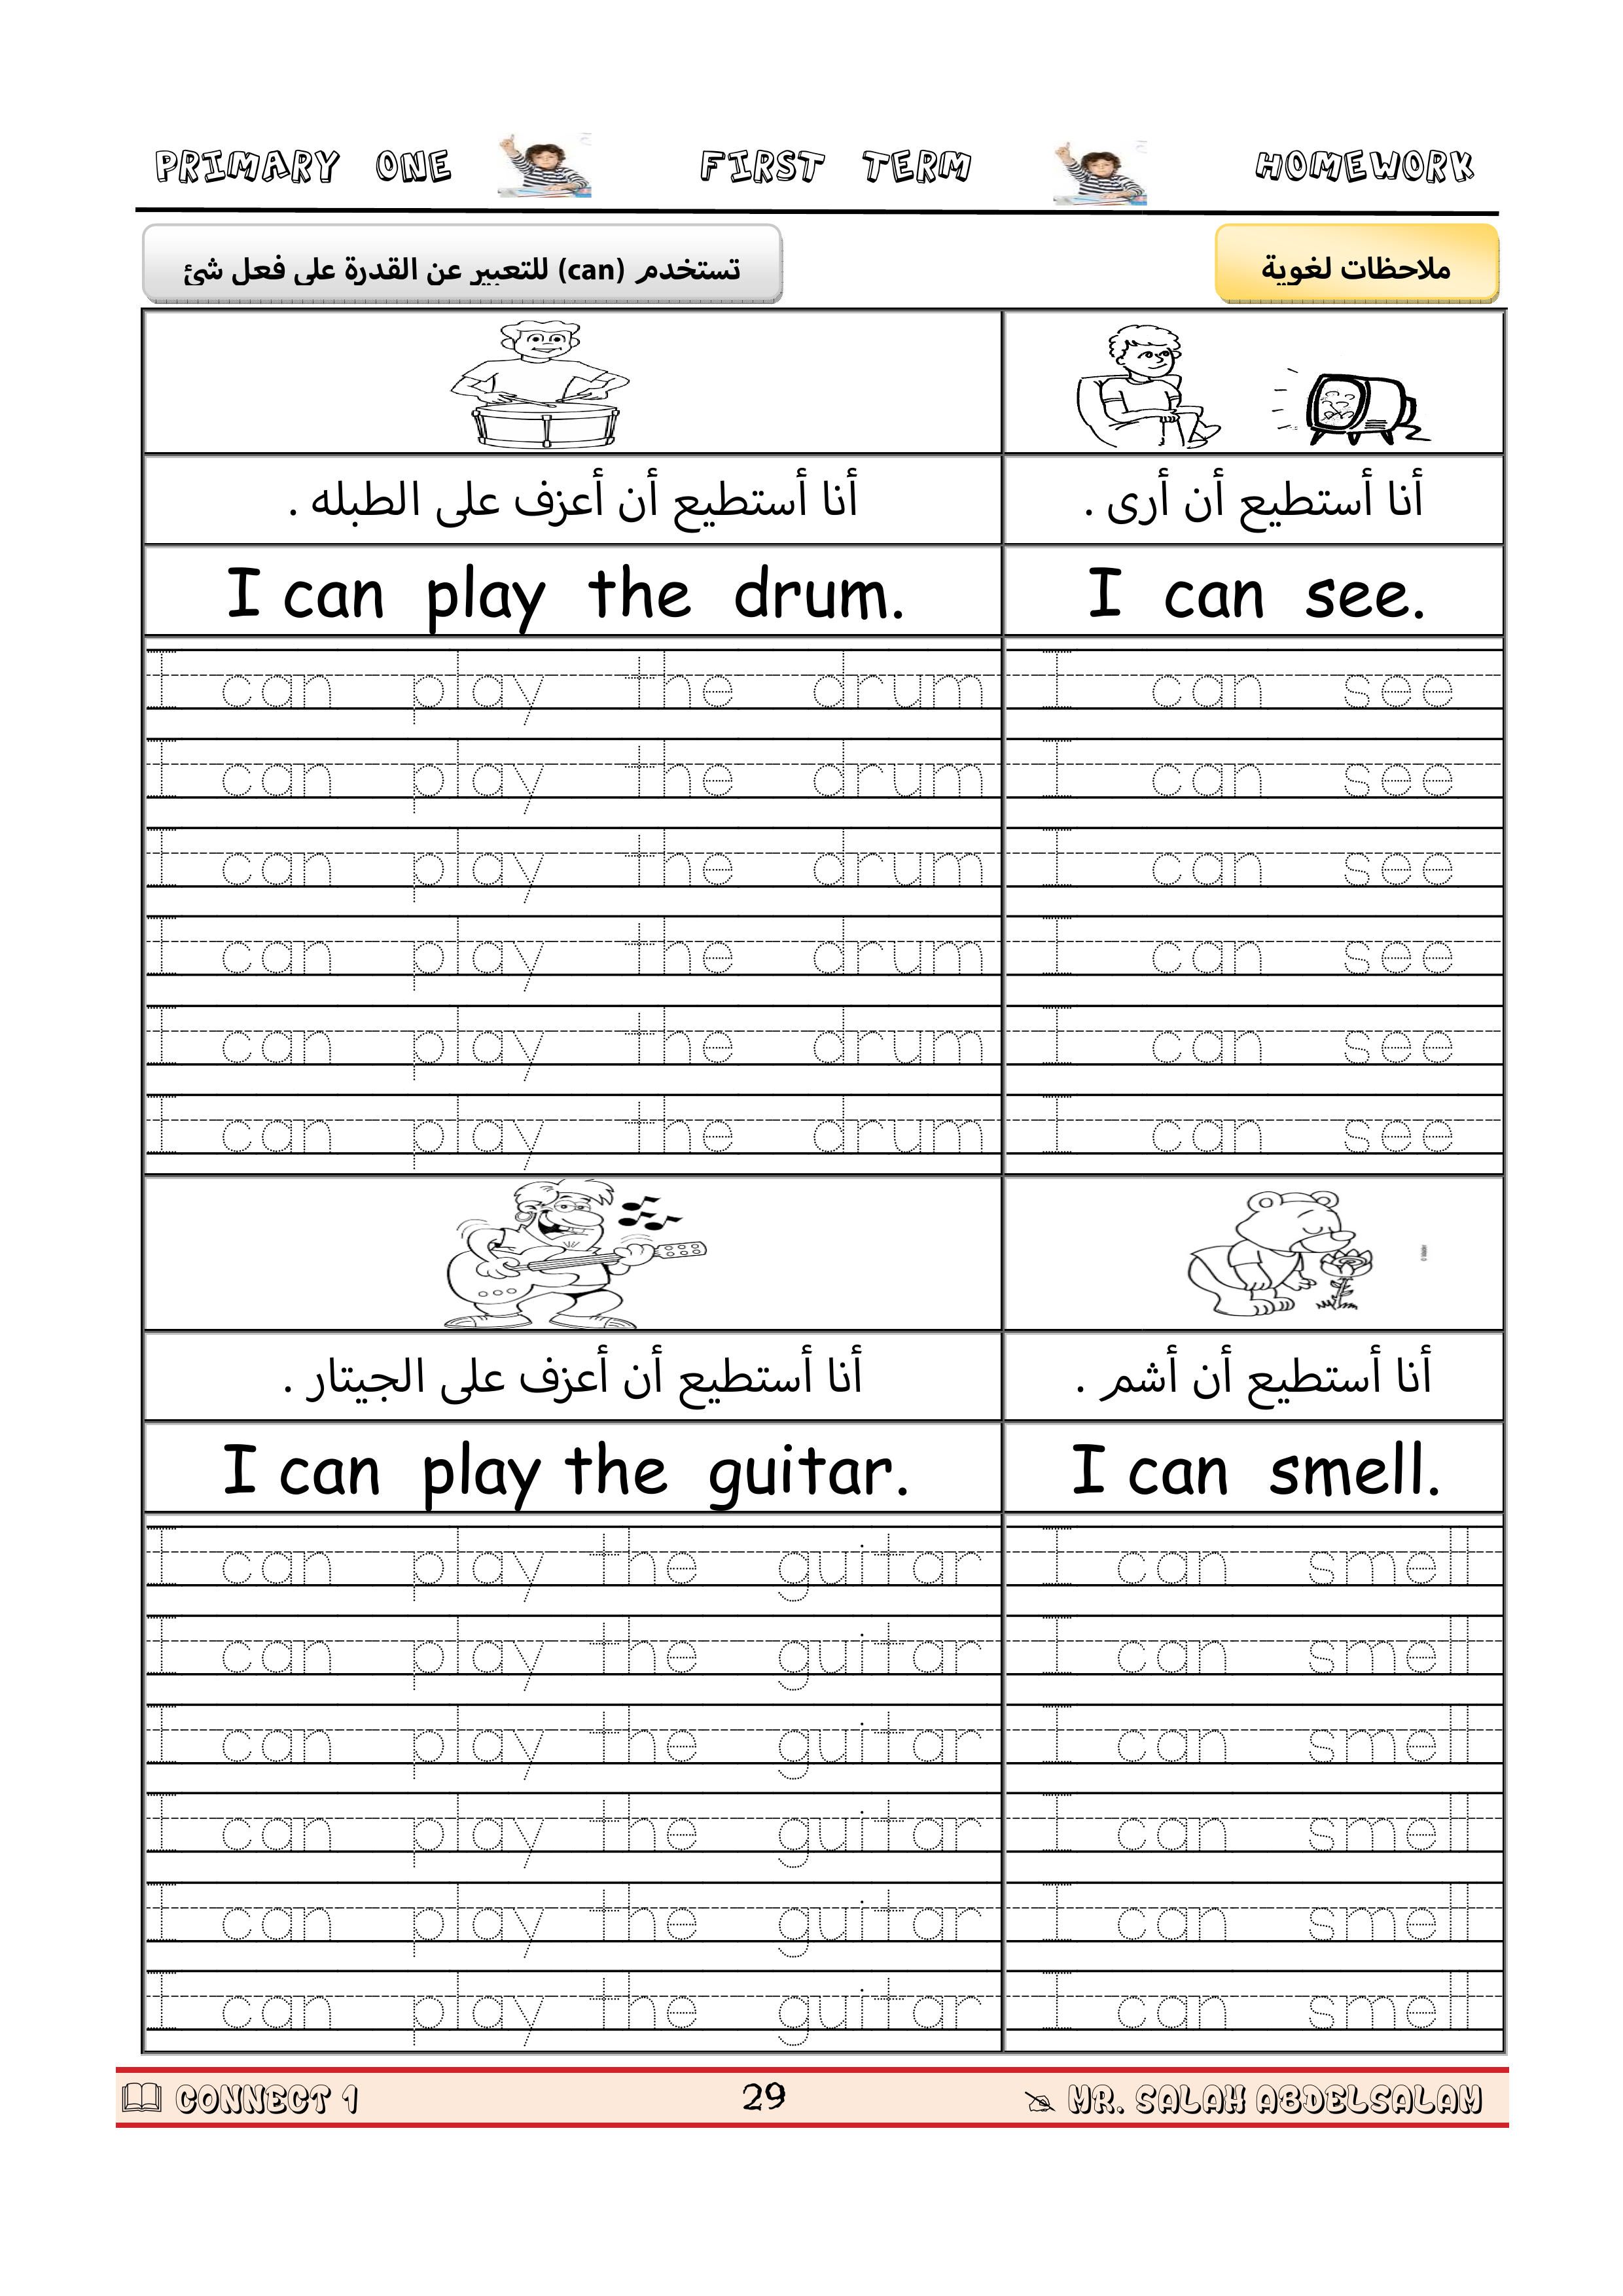 PRIMARY ONE FIRST TERM HOMEWORK
ملاحظات لغوية
تستخدم (can) للتعبير عن القدرة على فعل شئ
أنا أستطيع أن أعزف على الطبله .
أنا أستطيع أن أرى .
I can play the drum.
I can see.
I can play the drum
I can see
I can play the drum
I can see
I can play the drum
I can see
I can play the drum
I can see
I can play the drum
I can see
I can play the drum
I can see
أنا أستطيع أن أعزف على الجيتار .
أنا أستطيع أن أشم .
I can play the guitar.
I can smell.
I can play the guitar
I can smell
I can play the guitar
I can smell
I can play the guitar
I can smell
I can play the guitar
I can smell
I can play the guitar
I can smell
I can play the guitar
I can smell
CONNECT 1 29 MR. SALAH ABDELSALAM